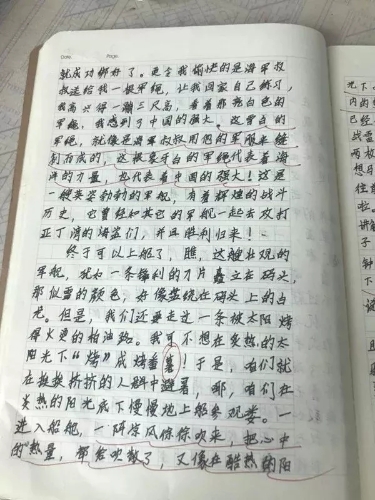 Date. Page.
就成功绑好了。更令我愉快的是海军叔
叔送给我一根军绳,让我回家自己练习,
我高兴得一蹦三尺高,看着那亮白色的
军绳,我感到了中国的强大。这雪白的
军绳,就像是海军叔叔用他的军服来缝
制而成的,这根象牙白的军绳代表着海
洋的力量,也代表着中国的强大!这是
一艘英姿勃勃的军舰,有着辉煌的战斗
历史,它曾经和其它的军舰一起去攻打
亚丁湾的海盗们,并且胜利归来!
终于可以上船了,瞧,这艘壮观的
军舰,犹如一条锋利的刀片矗立在码头,
那似雪的颜色,好像盘绕在码头上的白
龙。但是,我们还要走过一条被太阳烤
得火烫的柏油路。我可不想在炙热的太
阳光下“烤”成烤番薯!于是,咱们就
在挨挨挤挤的人群中避暑,哪,咱们在
炎热的阳光底下慢慢地上船参观娄。一
进入船舱,一阵凉风徐徐吹来,把心中
的“热量”,都给吹散了,又像在酷热的阳
光下,
内的
已经
战
两枚
想
往
啦。
讲解
子
钟
下